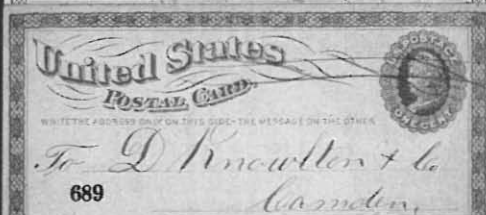 United States
POSTAL CARD.
U.S. POSTAGE
ONE CENT
WRITE THE ADDRESS ONLY ON THIS SIDE-THE MESSAGE ON THE OTHER
To D Knowlton & Co
689
Camden,